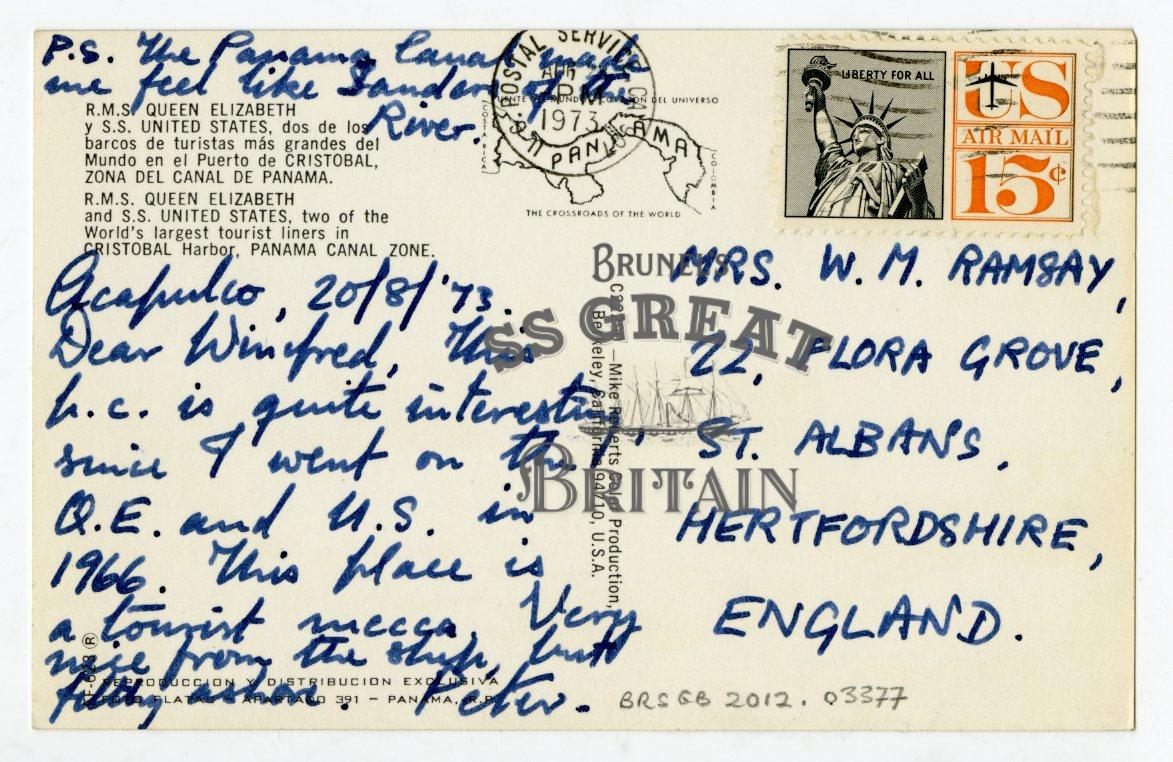 P.S. The Panama Canal made
me feel like Sanders of the
River.
R.M.S. QUEEN ELIZABETH
y S.S. UNITED STATES, dos de los
barcos de turistas más grandes del
Mundo en el Puerto de CRISTOBAL,
ZONA DEL CANAL DE PANAMA.
R.M.S. QUEEN ELIZABETH
and S.S. UNITED STATES, two of the
World's largest tourist liners in
CRISTOBAL Harbor, PANAMA CANAL ZONE.
Acapulco, 20/8/'73.
Dear Winifred, This
p.c. is quite interesting
since I went on the
Q.E. and U.S. in
1966. This place is
a tourist mecca. Very
nice from the ship, but
filthy ashore. Peter.
REPRODUCCION Y DISTRIBUCION EXCLUSIVA
FOTO FLATAU - APARTADO 391 - PANAMA, R.P.
POSTAL SERVICE
1973
DEL UNIVERSO
COSTA RICA
PANAMA
COLOMBIA
THE CROSSROADS OF THE WORLD
—Mike Roberts Color Production,
Berkeley, California 94710, U.S.A.
LIBERTY FOR ALL
US
AIR MAIL
15¢
MRS. W. M. RAMSAY,
22, FLORA GROVE,
ST. ALBANS,
HERTFORDSHIRE,
ENGLAND.
BRUNEL'S
SS GREAT
BRITAIN
BRSGB 2012. 03377